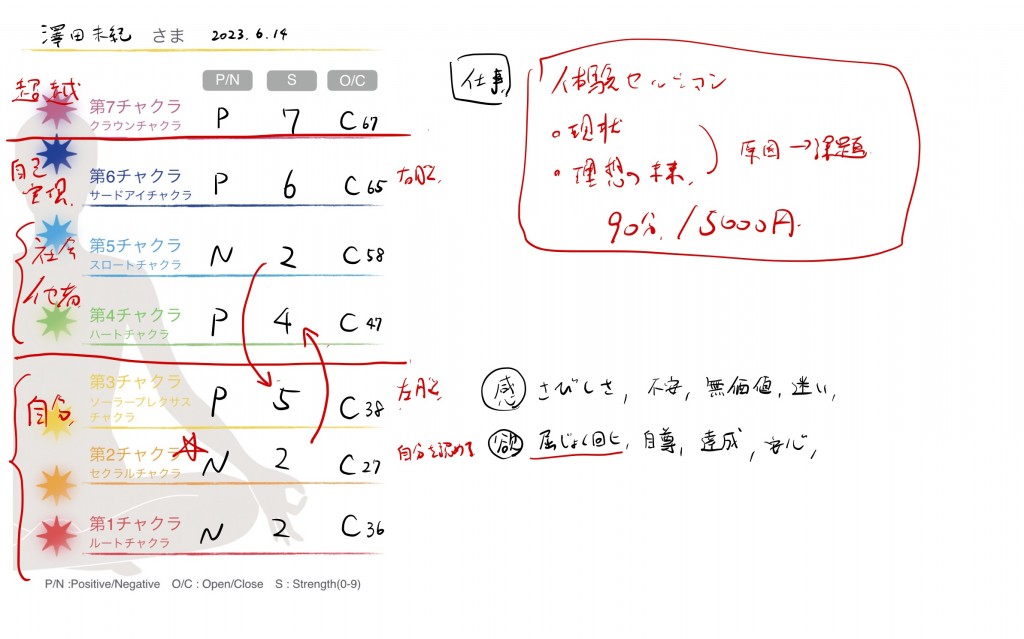 澤田未紀 さま 2023.6.14
P/N S O/C
超越
第7チャクラ P 7 C 67
クラウンチャクラ
自己実現
第6チャクラ P 6 C 65 右脳
サードアイチャクラ
社会
他者
第5チャクラ N 2 C 58
スロートチャクラ
第4チャクラ P 4 C 47
ハートチャクラ
自分
第3チャクラ P 5 C 38 左脳
ソーラープレクサス
チャクラ
第2チャクラ N 2 C 27 自分を認めて
セクラルチャクラ
第1チャクラ N 2 C 36
ルートチャクラ
P/N :Positive/Negative O/C : Open/Close S : Strength(0-9)
仕事
体験セッション
・現状
・理想の未来
原因→課題
90分/5000円
感 さびしさ, 不安, 無価値, 迷い,
欲 屈じょく回ヒ, 自尊, 達成, 安心,